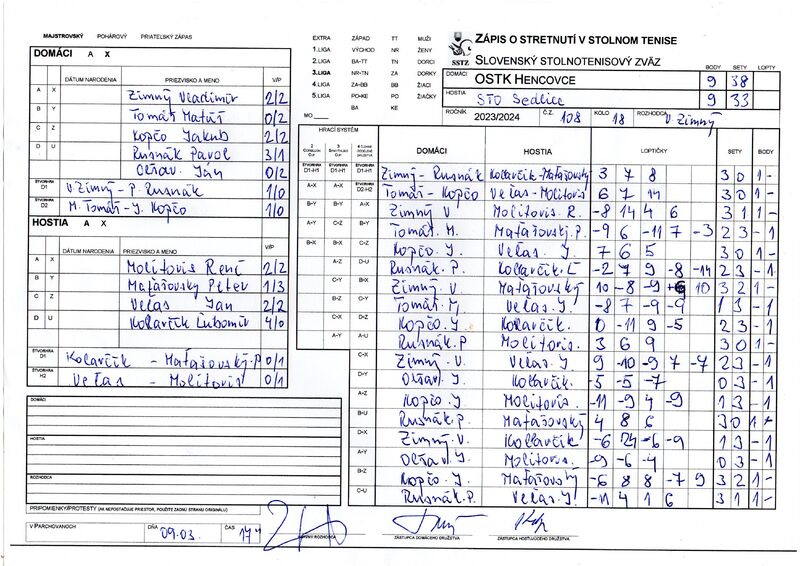 MAJSTROVSKÝ POHÁROVÝ PRIATEĽSKÝ ZÁPAS
EXTRA ZÁPAD TT MUŽI
1.LIGA VÝCHOD NR ŽENY
2.LIGA BA-TT TN DORCI
3.LIGA NR-TN ZA DORKY
4.LIGA ZA-BB BB ŽIACI
5.LIGA PO-KE PO ŽIAČKY
BA KE
MO
ZÁPIS O STRETNUTÍ V STOLNOM TENISE
SSTZ SLOVENSKÝ STOLNOTENISOVÝ ZVÄZ
BODY SETY LOPTY
DOMÁCI OSTK HENCOVCE 9 38
HOSTIA STO Sedlice 9 33
ROČNÍK 2023/2024 Č.Z. 108 KOLO 18 ROZHODCA V. Zimný
DOMÁCI A X
DÁTUM NARODENIA PRIEZVISKO A MENO V/P
A X Zimný Vladimír 2/2
B Y Tomáš Matúš 0/2
C Z Kopčo Jakub 2/2
D U Rusnák Pavol 3/1
Oľšav. Ján 0/2
ŠTVORHRA D1 V. Zimný - P. Rusnák 1/0
ŠTVORHRA D2 M. Tomáš - J. Kopčo 1/0
HOSTIA A X
DÁTUM NARODENIA PRIEZVISKO A MENO V/P
A X Molitoris René 2/2
B Y Maťašovský Peter 1/3
C Z Veľas Ján 2/2
D U Kollarčik Ľubomír 4/0
ŠTVORHRA D1 Kollarčik - Maťašovský.P 0/1
ŠTVORHRA H2 Veľas - Molitoris 0/1
DOMÁCI
HOSTIA
ROZHODCA
PRIPOMIENKY/PROTESTY (AK NEPOSTAČUJE PRIESTOR, POUŽITE ZADNÚ STRANU ORIGINÁLU)
V PARCHOVANOCH DŇA 09.03. ČAS 17
HRACÍ SYSTÉM
DOMÁCI HOSTIA LOPTIČKY SETY BODY
ŠTVORHRA D1-H1 ŠTVORHRA D1-H1 ŠTVORHRA D1-H1 Zimný - Rusnák Kollarčik - Maťašovský 3 7 8 3 0 1 -
A-X A-X ŠTVORHRA D2-H2 Tomáš - Kopčo Veľas - Molitoris 6 7 14 3 0 1 -
B-Y B-Y A-X Zimný V Molitoris. R. -8 14 4 6 3 1 1 -
A-Y C-Z B-Y Tomáš. M. Maťašovský. P. -9 6 -11 7 -3 2 3 -1
B-X B-X C-Z Kopčo. J. Veľas. J. 7 6 5 3 0 1 -
A-Z D-U Rusnák. P. Kollarčik. Ľ -2 7 9 -8 -14 2 3 -1
C-Y B-X Zimný. V. Maťašovský 10 -8 -9 6 10 3 2 1 -
B-Z C-Y Tomáš M. Veľas. J. -8 7 -9 -9 1 3 -1
C-X D-Z Kopčo. J. Kollarčik. 0 -11 9 -5 2 3 -1
A-Y A-U Rusnák. P Molitoris. 3 6 9 3 0 1 -
C-X Zimný. V. Veľas. J. 9 -10 -9 7 -7 2 3 -1
D-Y Oľšav. J. Kollarčik. -5 -5 -7 0 3 -1
A-Z Kopčo. J Molitoris. -11 -9 4 -9 1 3 -1
B-U Rusnák. P. Maťašovský 4 8 6 3 0 1
D-X Zimný. V. Kollarčik -6 24 -6 -9 1 3 -1
A-Y Oľšav J. Molitoris. -9 -6 -4 0 3 -1
B-Z Kopčo. J. Maťašovský -6 8 8 -7 9 3 2 1 -
C-U Rusnák. P. Veľas. J. -11 4 1 6 3 1 1 -
ZÁSTUPCA DOMÁCEHO DRUŽSTVA ZÁSTUPCA HOSŤUJÚCEHO DRUŽSTVA